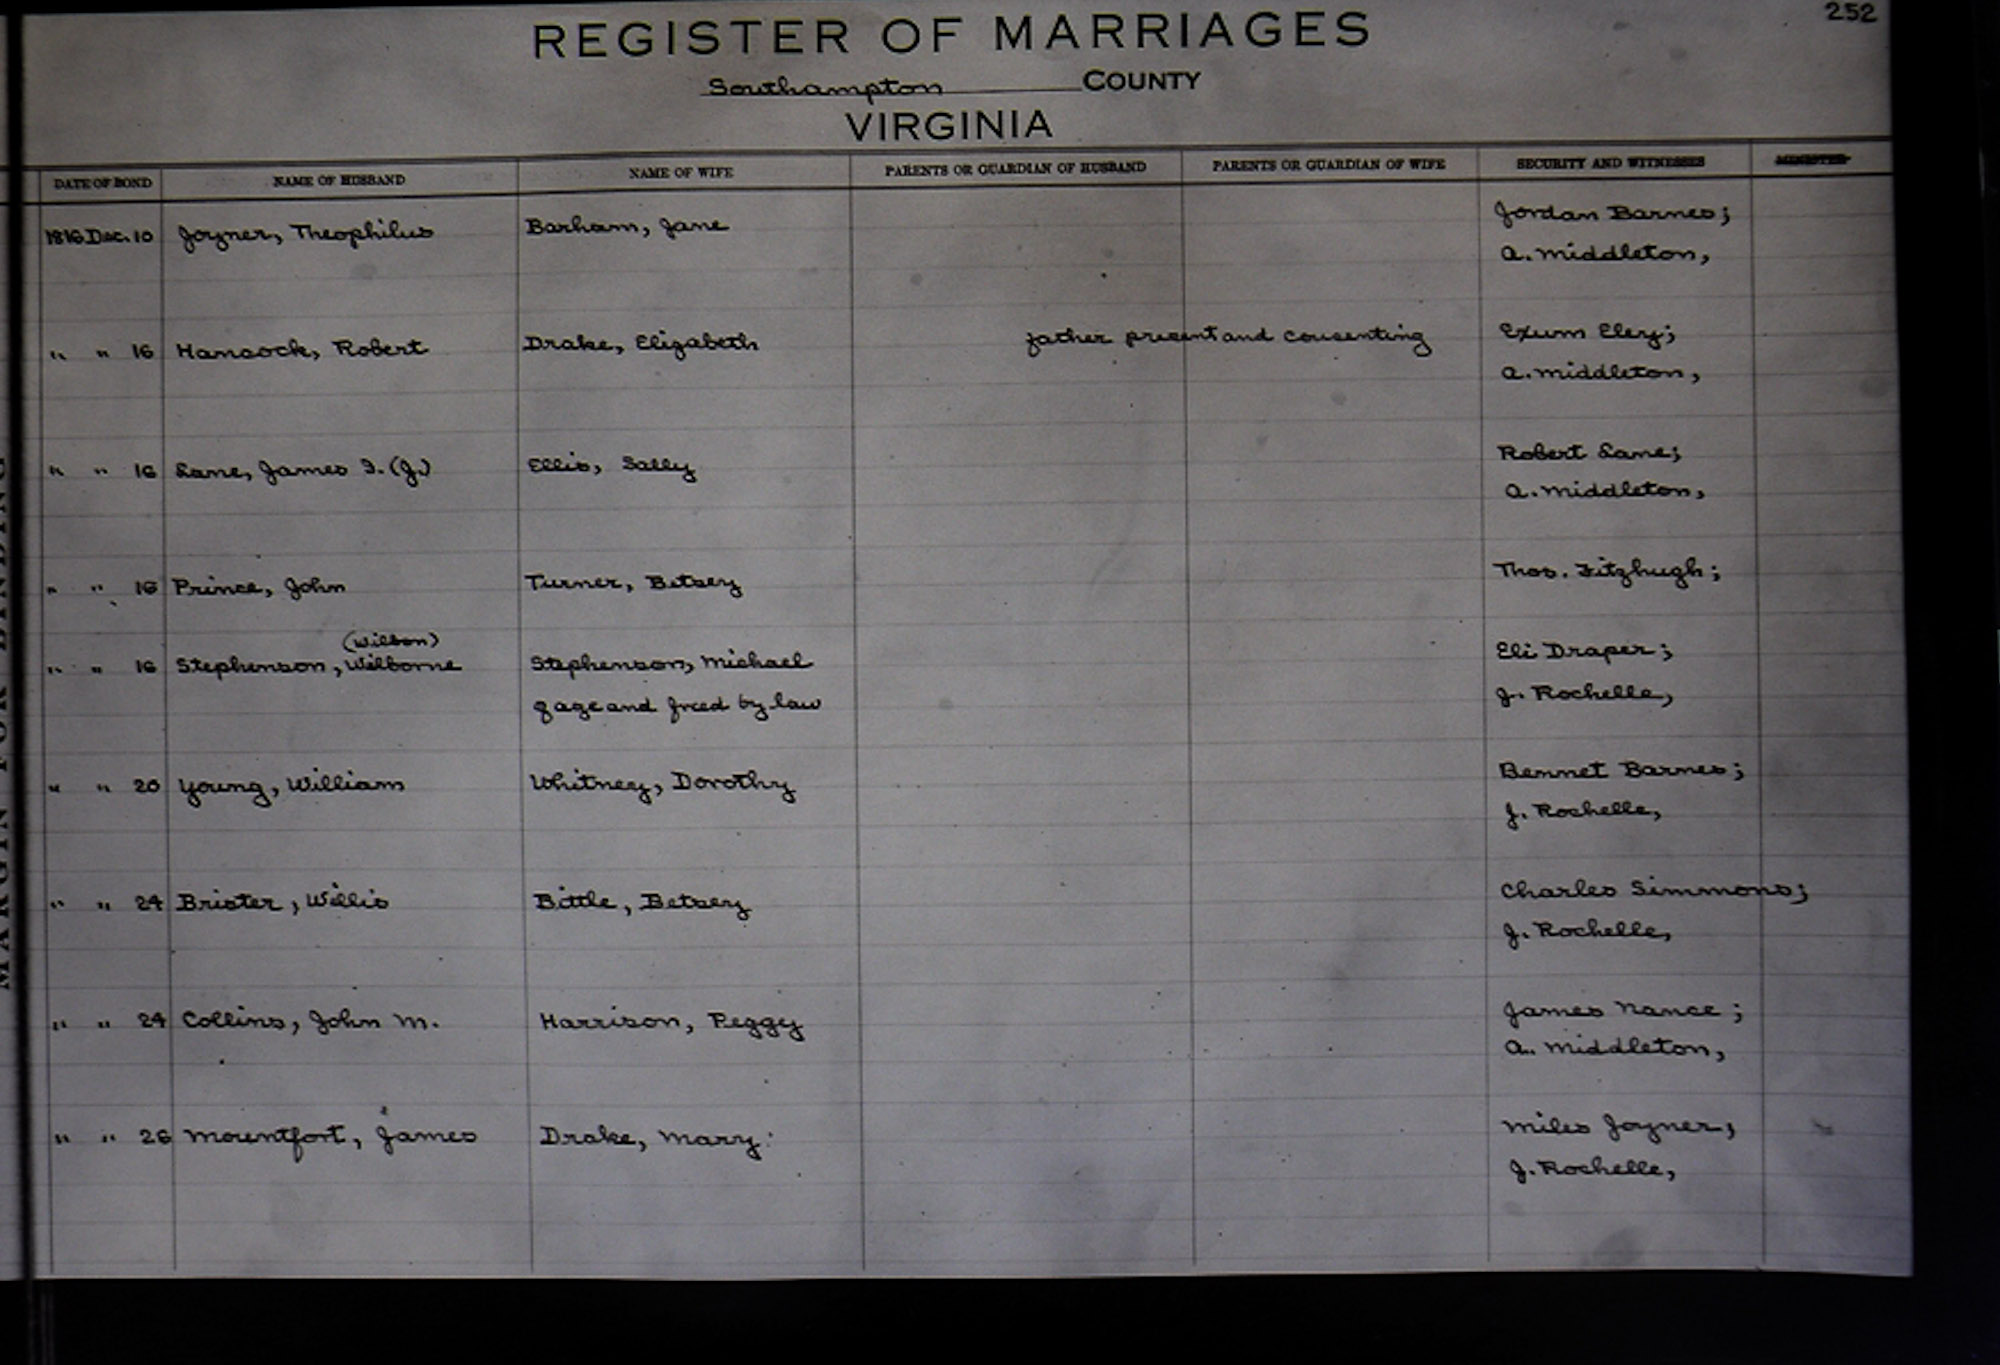 252
REGISTER OF MARRIAGES
Southampton COUNTY
VIRGINIA
DATE OF BOND NAME OF HUSBAND NAME OF WIFE PARENTS OR GUARDIAN OF HUSBAND PARENTS OR GUARDIAN OF WIFE SECURITY AND WITNESSES MINISTER
Jordan Barnes;
1816 Dec. 10 Joyner, Theophilus Barham, Jane
A. Middleton,
" " 16 Hancock, Robert Drake, Elizabeth father present and consenting Exum Eley;
A. Middleton,
Robert Lane;
" " 16 Lane, James I. (J.) Ellis, Sally
A. Middleton,
Thos. Fitzhugh;
" " 16 Prince, John Turner, Betsey
(Wilson)
Eli Draper;
" " 16 Stephenson, Wilborne Stephenson, Michael
J. Rochelle,
age and freed by law
Bennet Barnes;
" " 20 Young, William Whitney, Dorothy
J. Rochelle,
Charles Simmons;
" " 24 Brister, Willis Bittle, Betsey
J. Rochelle,
James Nance;
" " 24 Collins, John M. Harrison, Peggy
A. Middleton,
Miles Joyner,
" " 26 Mountfort, James Drake, Mary
J. Rochelle,
MARGIN FOR BINDING